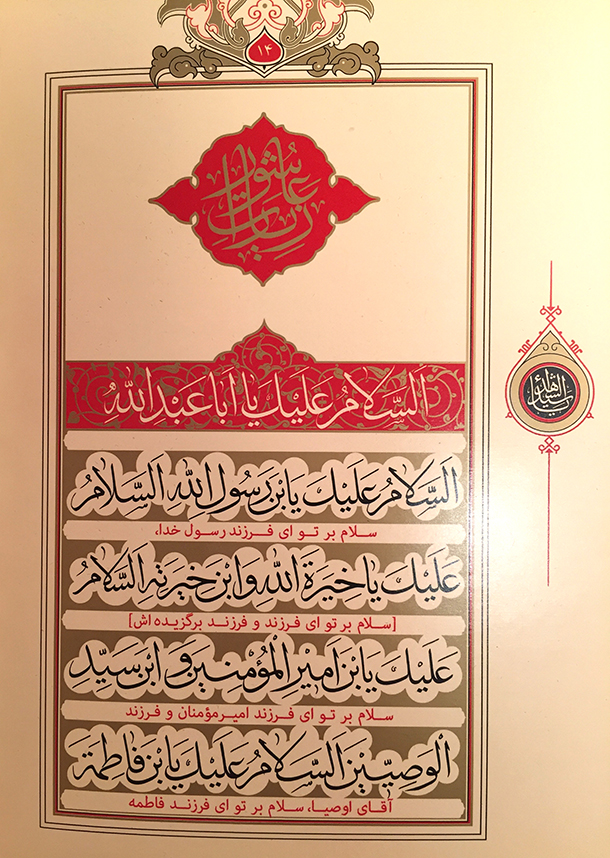 ۱۴
زیارت عاشورا
اَلسَّلامُ عَلَيْكَ يا اَبا عَبْدِاللهِ
اَلسَّلامُ عَلَيْكَ يَابْنَ رَسُولِ اللهِ اَلسَّلامُ
سلام بر تو ای فرزند رسول خدا،
عَلَيْكَ يا خِيَرَةَ اللهِ وَابْنَ خِيَرَتِهِ اَلسَّلامُ
[سلام بر تو ای فرزند و فرزند برگزیده اش]
عَلَيْكَ يَابْنَ اَميرِ الْمُؤْمِنينَ وَ ابْنَ سَيِّدِ
سلام بر تو ای فرزند امیرمؤمنان و فرزند
الْوَصِيّينَ اَلسَّلامُ عَلَيْكَ يَابْنَ فاطِمَةَ
آقای اوصیا، سلام بر تو ای فرزند فاطمه